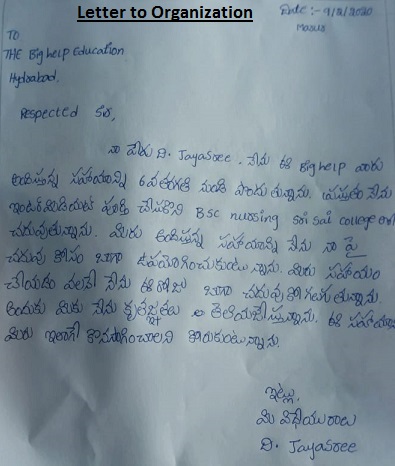 Letter to Organization
Date :- 9/2/2020
TO
THE Big help Education
Hydrabad.
Respected Sir,
నా పేరు D. Jayasree. నేను ఈ Big help వారు
అందిస్తున్న సహాయాన్ని 6వ తరగతి నుండి పొందుతున్నాను. ప్రస్తుతం నేను
ఇంటర్మీడియట్ పూర్తి చేసుకొని Bsc nursing sri sai college లో
చదువుతున్నాను. మీరు అందిస్తున్న సహాయాన్ని నేను నా పై
చదువు కోసం బాగా ఉపయోగించుకుంటున్నాను. మీరు సహాయం
చేయడం వలనే నేను ఈ రోజు బాగా చదువుకోగలుగుతున్నాను.
అందుకు మీకు నేను కృతజ్ఞతలు తెలియజేస్తున్నాను. ఈ సహాయాన్ని
మీరు ఇలాగే కొనసాగించాలని కోరుకుంటున్నాను.
ఇట్లు,
మీ విధేయురాలు
D. Jayasree